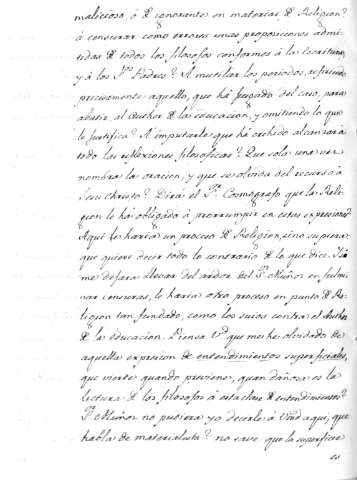 malicioso, ó de ignorante en materias de Religion?
á censurar como erroneas unas proposiciones admi-
tidas de todos los filosofos conformes á la escritura,
y á los S.tos Padres? A mutilar los periodos, refiriendo
precisamente aquello, que há juzgado del caso, para
abatir al Author de la educacion, y omitiendo lo que
le justifica? A imputarle que há crehido alcanzará
todo las reflexiones filosoficas? Que sola una vez
nombra la oracion, y que se olvida del recurso á
Jesu Christo? Dirá el P.e Cosmografo que la Reli-
gion le há obligado á prorrumpir en estas expresiones?
Aqui le haria un proceso de Religion, sino supiera
que quiere decir todo lo contrario de lo que dice. Si
me dejara llevar del ardor del P.e Muñoz en fulmi-
nar censuras, le haria otro proceso en punto de Re-
ligion tan fundado, como los suios contra el Author
de la educacion. Piensa V.d que me he olvidado de
aquella expresion de entendimientos superficiales,
que vierte quando previene, quan dañosa es la
lectura de los filosofos á esta clase de entendimientos?
P.e Muñoz no pudiera yo decirle á Vmd aqui, que
habla de materialista? no save que la superficie
es